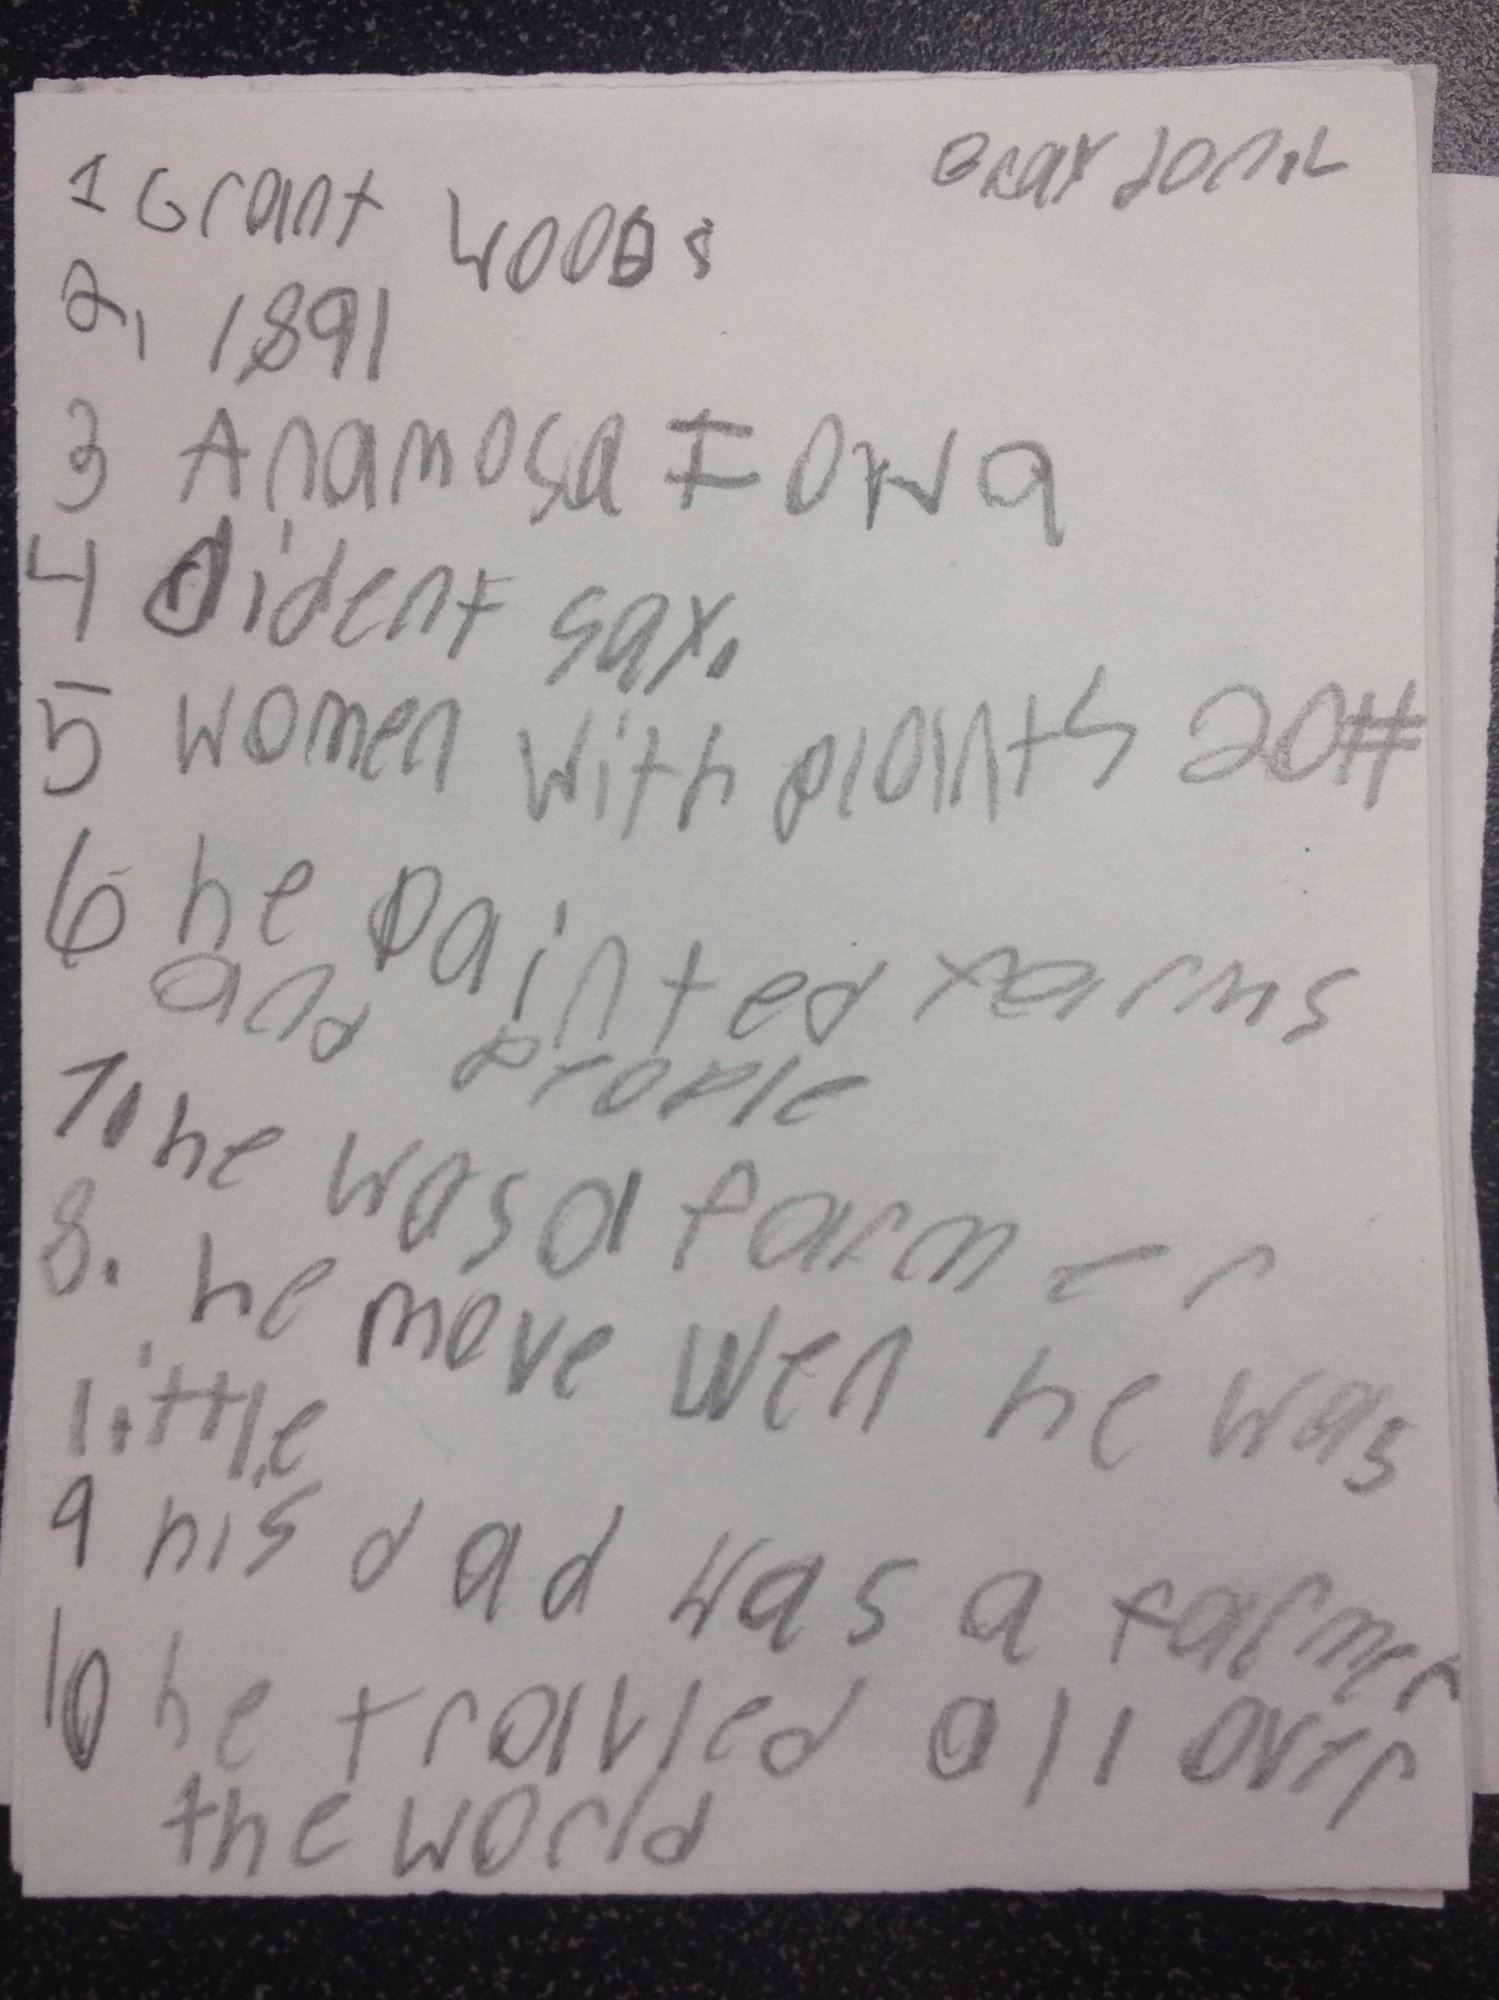 1 Grant Woods
2. 1891
3 Anamosa Iowa
4 dident sax.
5 women with plants 20#
6 he painted farms
and people
7. he was a farmer
8. he move wen he was
little
9 his dad was a farmer
10 he travled all over
the world